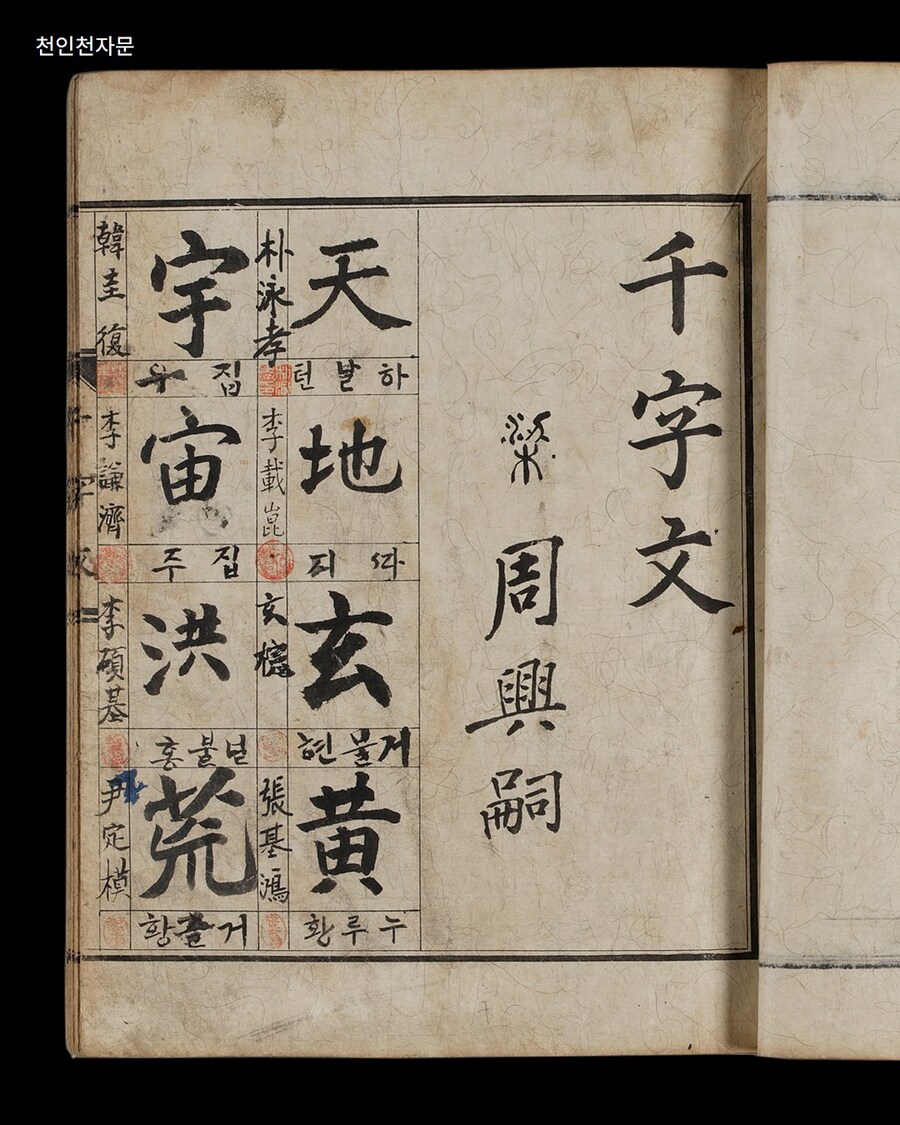 천인천자문
千字文
梁 周興嗣
天
하날텬
朴泳孝
地
ᄯᅡ
李載崑
玄
거물현
玄
黃
누루황
張基鴻
宇
집우
韓圭復
宙
집주
李謙濟
洪
널불홍
李碩基
荒
거츨황
尹定模